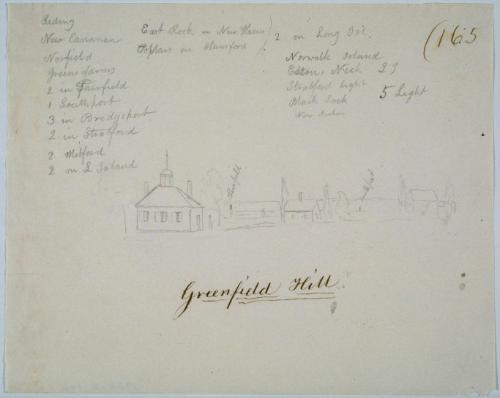 Reding
New Cannaan
Norfield
Greens farms
2 in Fairfield
1 Southport
3 in Bredgeport
2 in Stratford
2 Milford
2 on L Island
East Rock in New Haven
in Stamford
2 on Long Isl.
Norwalk Island
Neck
Stratford Light
Black Rock
New Haven
5 Light
(165
Greenfield Hill.